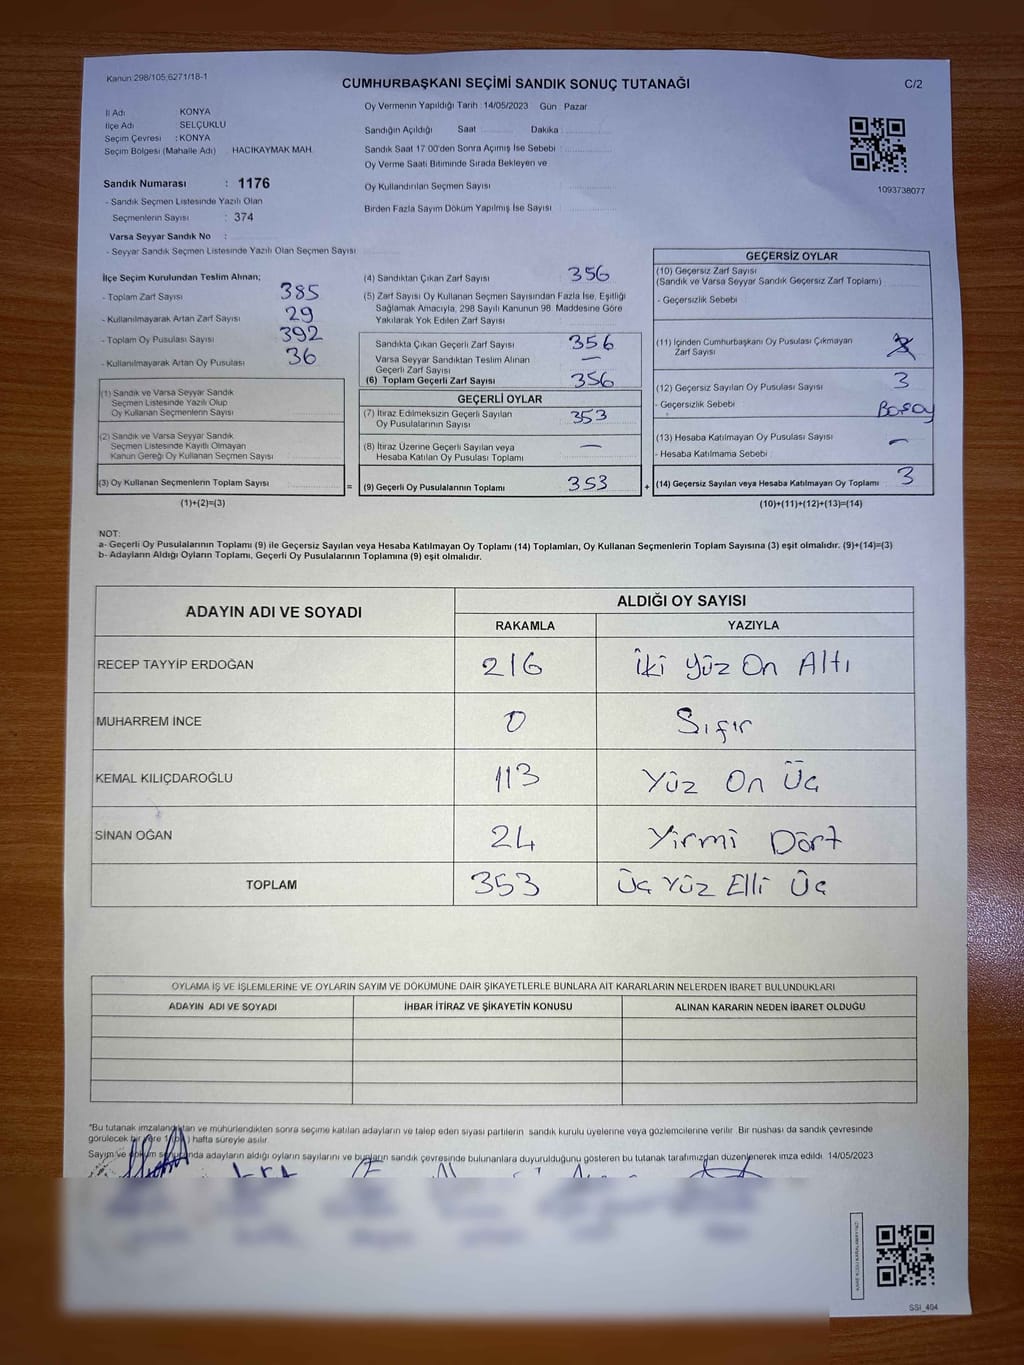 Kanun:298/105,6271/18-1
CUMHURBAŞKANI SEÇİMİ SANDIK SONUÇ TUTANAĞI
C/2
İl Adı : KONYA
İlçe Adı : SELÇUKLU
Seçim Çevresi : KONYA
Seçim Bölgesi (Mahalle Adı) : HACIKAYMAK MAH.
Oy Vermenin Yapıldığı Tarih : 14/05/2023 Gün : Pazar
Sandığın Açıldığı Saat Dakika :
Sandık Saat 17:00'den Sonra Açılmış İse Sebebi :
Oy Verme Saati Bitiminde Sırada Bekleyen ve
Oy Kullandırılan Seçmen Sayısı
Birden Fazla Sayım Döküm Yapılmış İse Sayısı
1093738077
Sandık Numarası : 1176
- Sandık Seçmen Listesinde Yazılı Olan
Seçmenlerin Sayısı : 374
Varsa Seyyar Sandık No :
- Seyyar Sandık Seçmen Listesinde Yazılı Olan Seçmen Sayısı
İlçe Seçim Kurulundan Teslim Alınan;
- Toplam Zarf Sayısı 385
- Kullanılmayarak Artan Zarf Sayısı 29
- Toplam Oy Pusulası Sayısı 392
- Kullanılmayarak Artan Oy Pusulası 36
(1) Sandık ve Varsa Seyyar Sandık
Seçmen Listesinde Yazılı Olup
Oy Kullanan Seçmenlerin Sayısı
(2) Sandık ve Varsa Seyyar Sandık
Seçmen Listesinde Kayıtlı Olmayan
Kanun Gereği Oy Kullanan Seçmen Sayısı
(3) Oy Kullanan Seçmenlerin Toplam Sayısı
(1)+(2)=(3)
(4) Sandıktan Çıkan Zarf Sayısı 356
(5) Zarf Sayısı Oy Kullanan Seçmen Sayısından Fazla İse, Eşitliği
Sağlamak Amacıyla, 298 Sayılı Kanunun 98. Maddesine Göre
Yakılarak Yok Edilen Zarf Sayısı
Sandıkta Çıkan Geçerli Zarf Sayısı 356
Varsa Seyyar Sandıktan Teslim Alınan
Geçerli Zarf Sayısı —
(6) Toplam Geçerli Zarf Sayısı 356
GEÇERLİ OYLAR
(7) İtiraz Edilmeksizin Geçerli Sayılan
Oy Pusulalarının Sayısı 353
(8) İtiraz Üzerine Geçerli Sayılan veya
Hesaba Katılan Oy Pusulası Toplamı —
= (9) Geçerli Oy Pusulalarının Toplamı 353 +
GEÇERSİZ OYLAR
(10) Geçersiz Zarf Sayısı
(Sandık ve Varsa Seyyar Sandık Geçersiz Zarf Toplamı)
- Geçersizlik Sebebi
(11) İçinden Cumhurbaşkanı Oy Pusulası Çıkmayan
Zarf Sayısı
(12) Geçersiz Sayılan Oy Pusulası Sayısı 3
- Geçersizlik Sebebi
(13) Hesaba Katılmayan Oy Pusulası Sayısı —
- Hesaba Katılmama Sebebi
(14) Geçersiz Sayılan veya Hesaba Katılmayan Oy Toplamı 3
(10)+(11)+(12)+(13)=(14)
NOT:
a- Geçerli Oy Pusulalarının Toplamı (9) ile Geçersiz Sayılan veya Hesaba Katılmayan Oy Toplamı (14) Toplamları, Oy Kullanan Seçmenlerin Toplam Sayısına (3) eşit olmalıdır. (9)+(14)=(3)
b- Adayların Aldığı Oyların Toplamı, Geçerli Oy Pusulalarının Toplamına (9) eşit olmalıdır.
ADAYIN ADI VE SOYADI ALDIĞI OY SAYISI
RAKAMLA YAZIYLA
RECEP TAYYİP ERDOĞAN 216 İki Yüz On Altı
MUHARREM İNCE 0 Sıfır
KEMAL KILIÇDAROĞLU 113 Yüz On Üç
SİNAN OĞAN 24 Yirmi Dört
TOPLAM 353 Üç Yüz Elli Üç
OYLAMA İŞ VE İŞLEMLERİNE VE OYLARIN SAYIM VE DÖKÜMÜNE DAİR ŞİKAYETLERLE BUNLARA AİT KARARLARIN NELERDEN İBARET BULUNDUKLARI
ADAYIN ADI VE SOYADI İHBAR İTİRAZ VE ŞİKAYETİN KONUSU ALINAN KARARIN NEDEN İBARET OLDUĞU
*Bu tutanak imzalandıktan ve mühürlendikten sonra seçime katılan adayların ve talep eden siyasi partilerin sandık kurulu üyelerine veya gözlemcilerine verilir. Bir nüshası da sandık çevresinde
görülecek bir yere 1 (bir) hafta süreyle asılır.
Sayım ve döküm sonucunda adayların aldığı oyların sayılarını ve bunların sandık çevresinde bulunanlara duyurulduğunu gösteren bu tutanak tarafımızdan düzenlenerek imza edildi. 14/05/2023
SSI_494